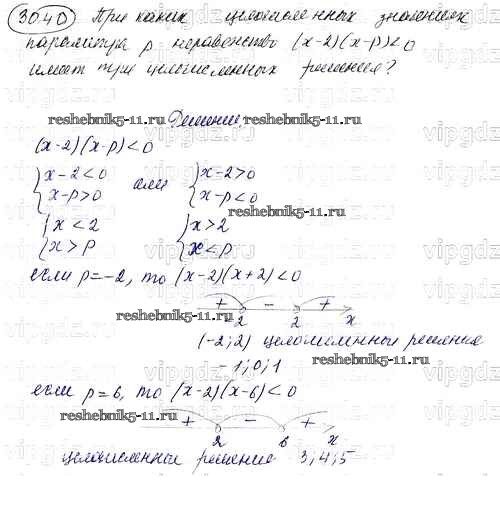 30.40 При каких целочисленных значениях
параметра p неравенство (x-2)(x-p)<0
имеет три целочисленных решения?
reshebnik5-11.ru
Решение
reshebnik5-11.ru
(x-2)(x-p)<0
{x-2<0 или {x-2>0
{x-p>0 {x-p<0
reshebnik5-11.ru
{x<2 {x>2
{x>p {x<p
если p=-2, то (x-2)(x+2)<0
+ - +
reshebnik5-11.ru
2 2 x
(-2;2) целочисленные решения
-1;0;1
reshebnik5-11.ru
если p=6, то (x-2)(x-6)<0
reshebnik5-11.ru
+ - +
2 6 x
целочисленные решения 3;4;5
vipgdz.ru